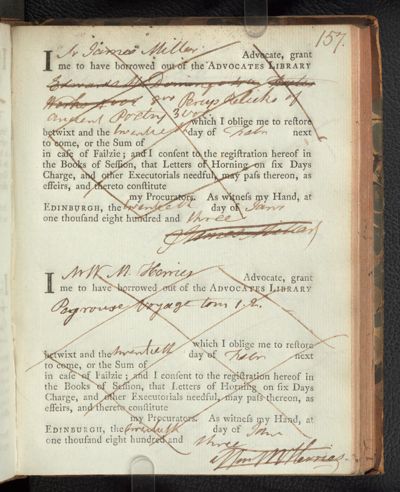 157.
I Sr James Miller Advocate, grant
me to have borrowed out of the ADVOCATES LIBRARY
Percys Relicks of
Ancient Poetry 3 vo
which I oblige me to restore
betwixt and the twentieth day of Febr next
to come, or the Sum of
in case of Failzie; and I consent to the registration hereof in
the Books of Session, that Letters of Horning on six Days
Charge, and other Executorials needful, may pass thereon, as
effeirs, and thereto constitute
my Procurators. As witness my Hand, at
EDINBURGH, the twentieth day of Janr
one thousand eight hundred and three
James Miller
I Mr W. M. Herries Advocate, grant
me to have borrowed out of the ADVOCATES LIBRARY
Voyage tom 1. 2.
which I oblige me to restore
betwixt and the twentieth day of Febr next
to come, or the Sum of
in case of Failzie; and I consent to the registration hereof in
the Books of Session, that Letters of Horning on six Days
Charge, and other Executorials needful, may pass thereon, as
effeirs, and thereto constitute
my Procurators. As witness my Hand, at
EDINBURGH, the twentieth day of Janr
one thousand eight hundred and three
Wm M Herries